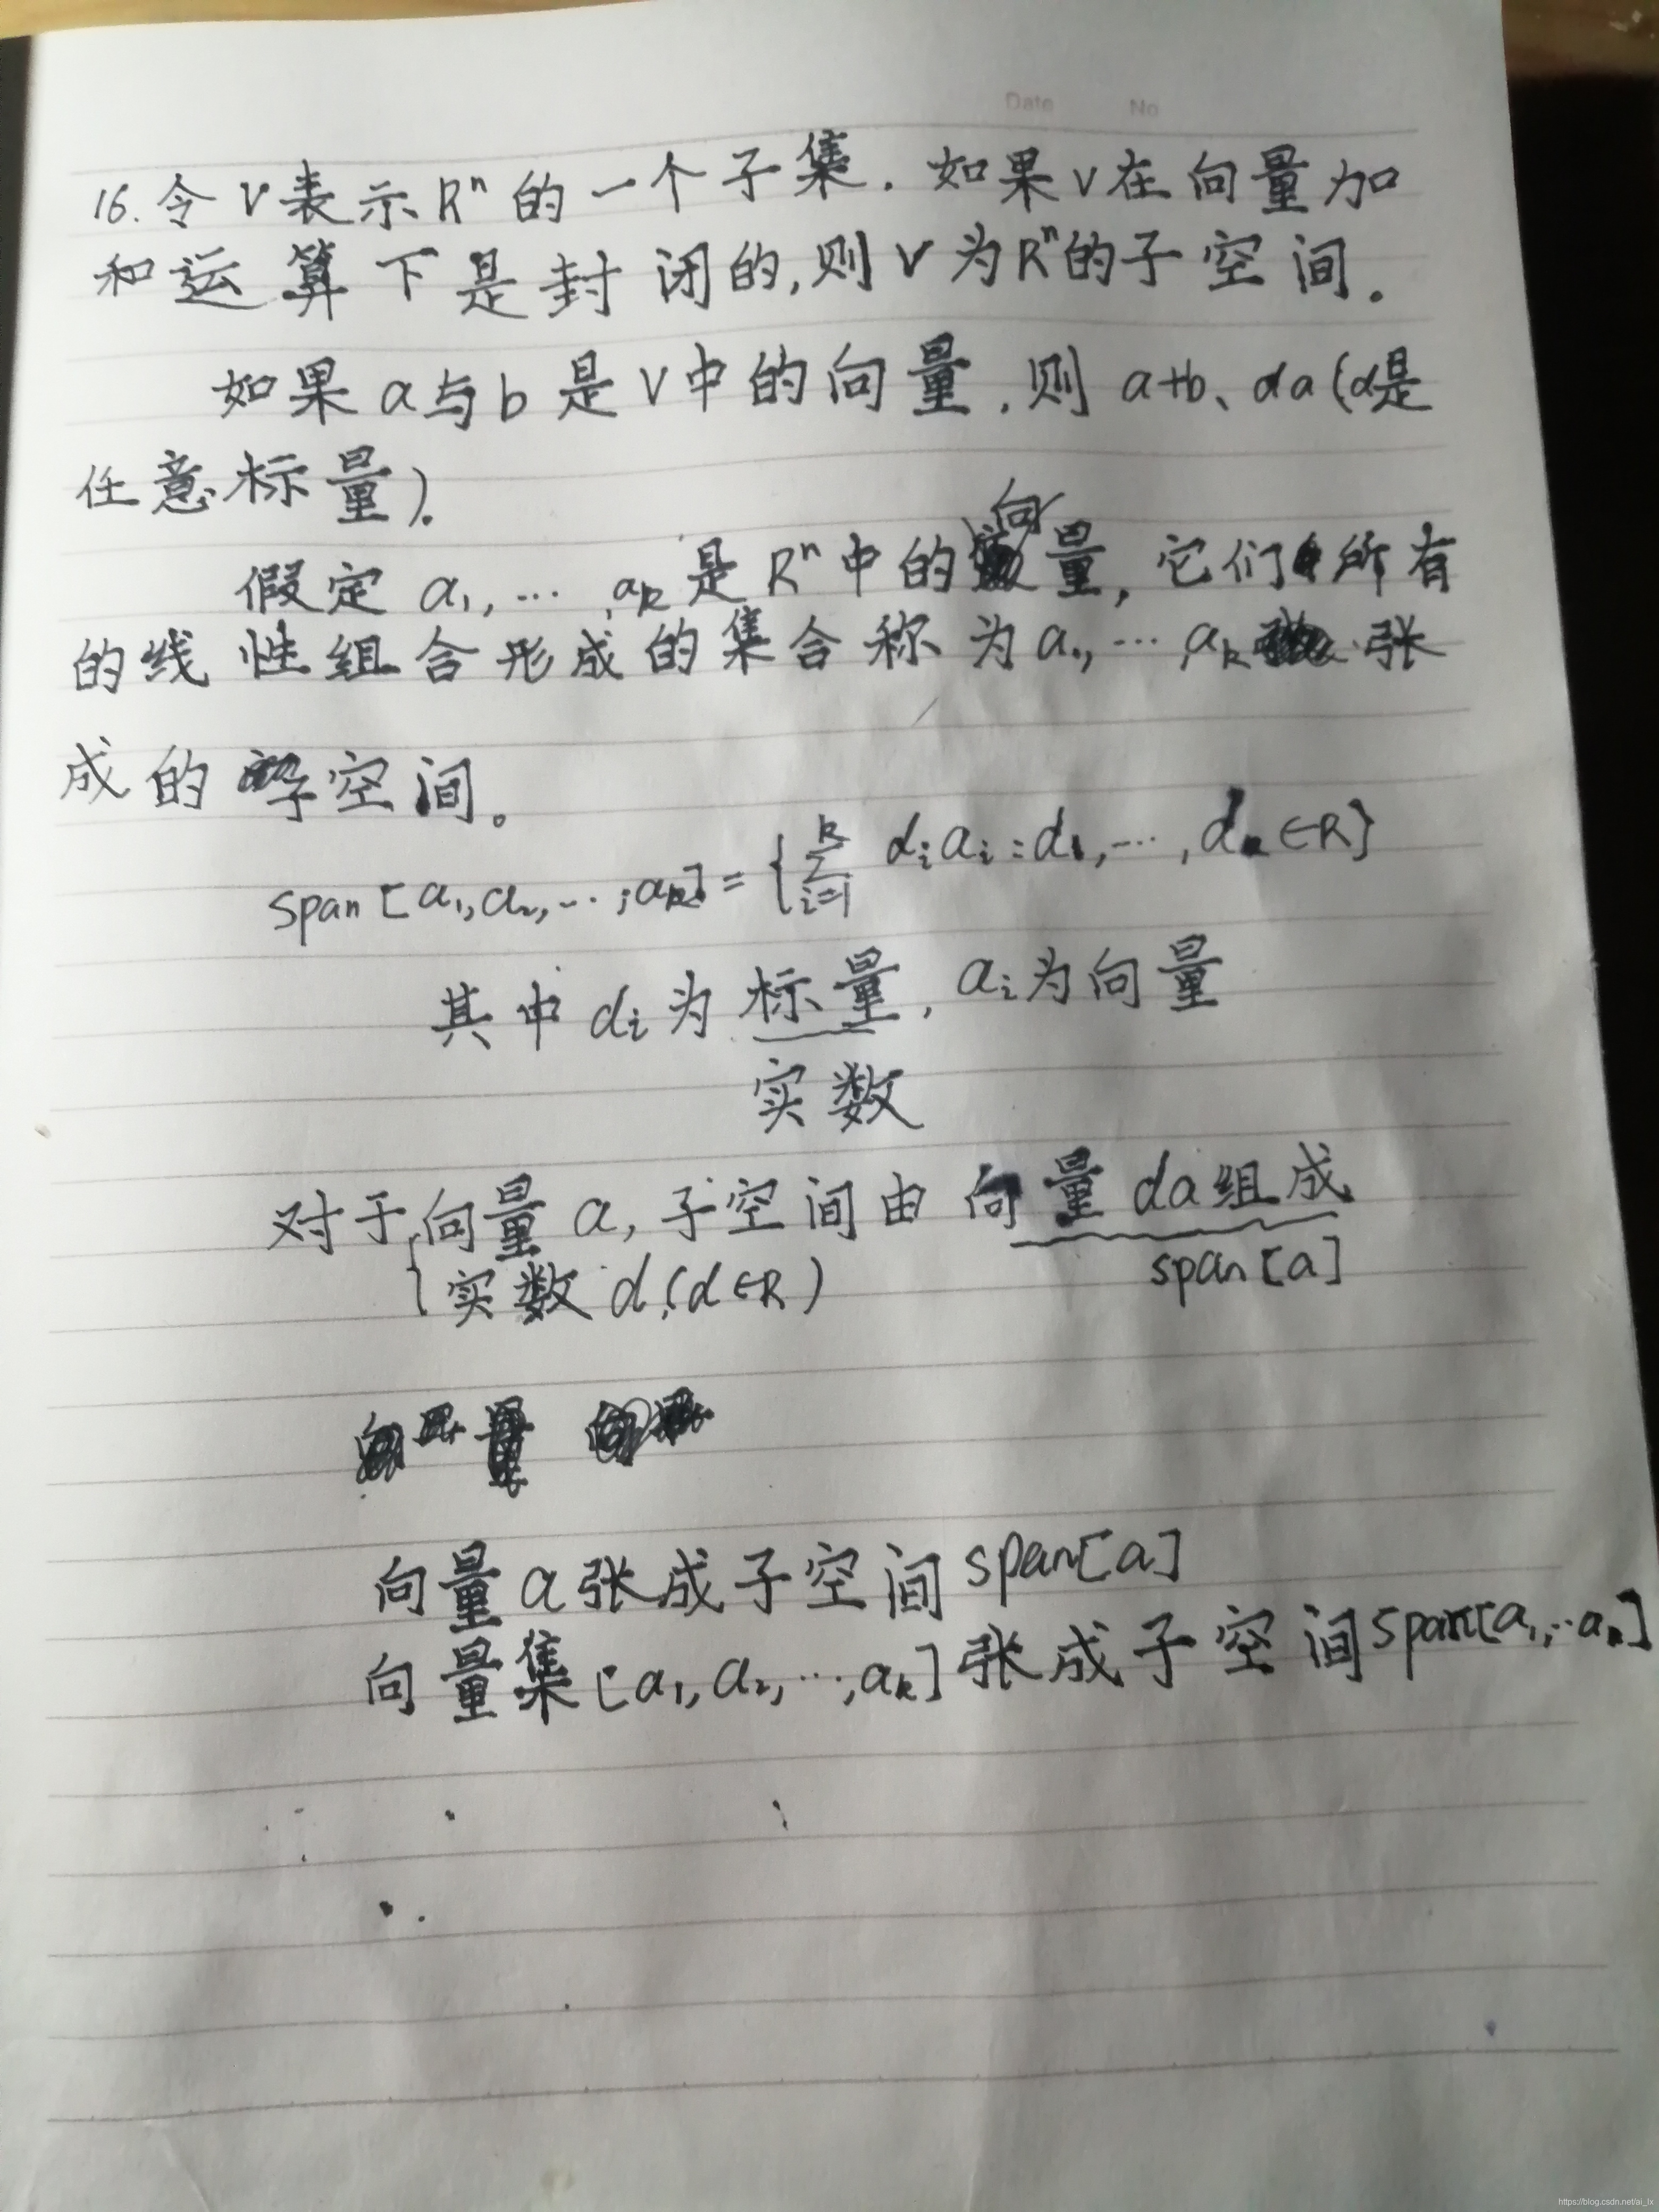 Date No
16. 令 V 表示 Rⁿ 的一个子集. 如果 V 在向量加
和运算下是封闭的, 则 V 为 Rⁿ 的子空间.
如果 a 与 b 是 V 中的向量, 则 a+b、αa (α是
任意标量).
向
假定 a₁, ⋯, aₖ 是 Rⁿ 中的量, 它们所有
的线性组合形成的集合称为 a₁, ⋯ aₖ 张
成的子空间。
span [a₁, a₂, ⋯, aₖ] = {∑ᵢ₌₁ᵏ αᵢaᵢ : α₁, ⋯, αₖ ∈ R}
其中 αᵢ 为标量, aᵢ 为向量
实数
对于向量 a, 子空间由向量 αa 组成
{实数 α (α∈R) span [a]
向量 a 张成子空间 span[a]
向量集 [a₁, a₂, ⋯, aₖ] 张成子空间 span[a₁, ⋯aₖ]
https://blog.csdn.net/ai_lx